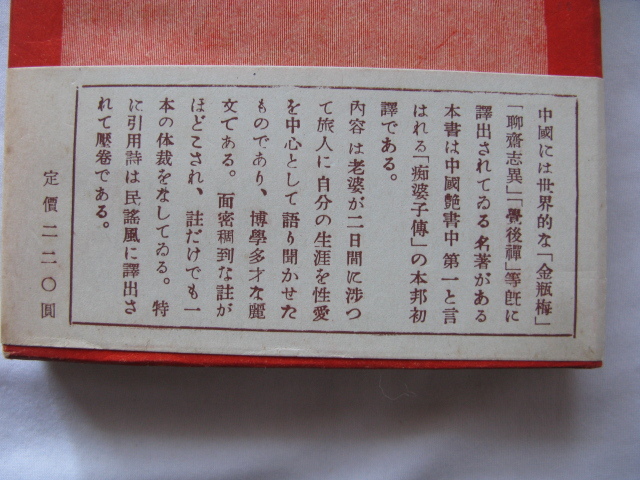 中國には世界的な「金瓶梅」
「聊齋志異」「覺後禪」等旣に
譯出されてゐる名著がある
本書は中國艶書中第一と言
はれる「痴婆子傳」の本邦初
譯である。
內容は老婆が二日間に涉つ
て旅人に自分の生涯を性愛
を中心として語り聞かせた
ものであり、博學多才な麗
文である。面密稠到な註が
ほどこされ、註だけでも一
本の体裁をなしてゐる。特
に引用詩は民謠風に譯出さ
れて壓卷である。
定價二二〇圓